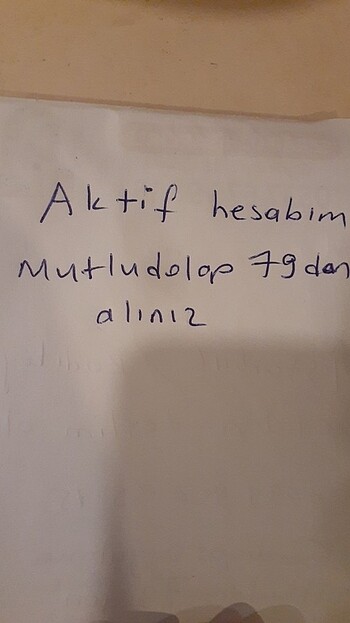 Aktif hesabım
Mutludolap 79 dan
alınız